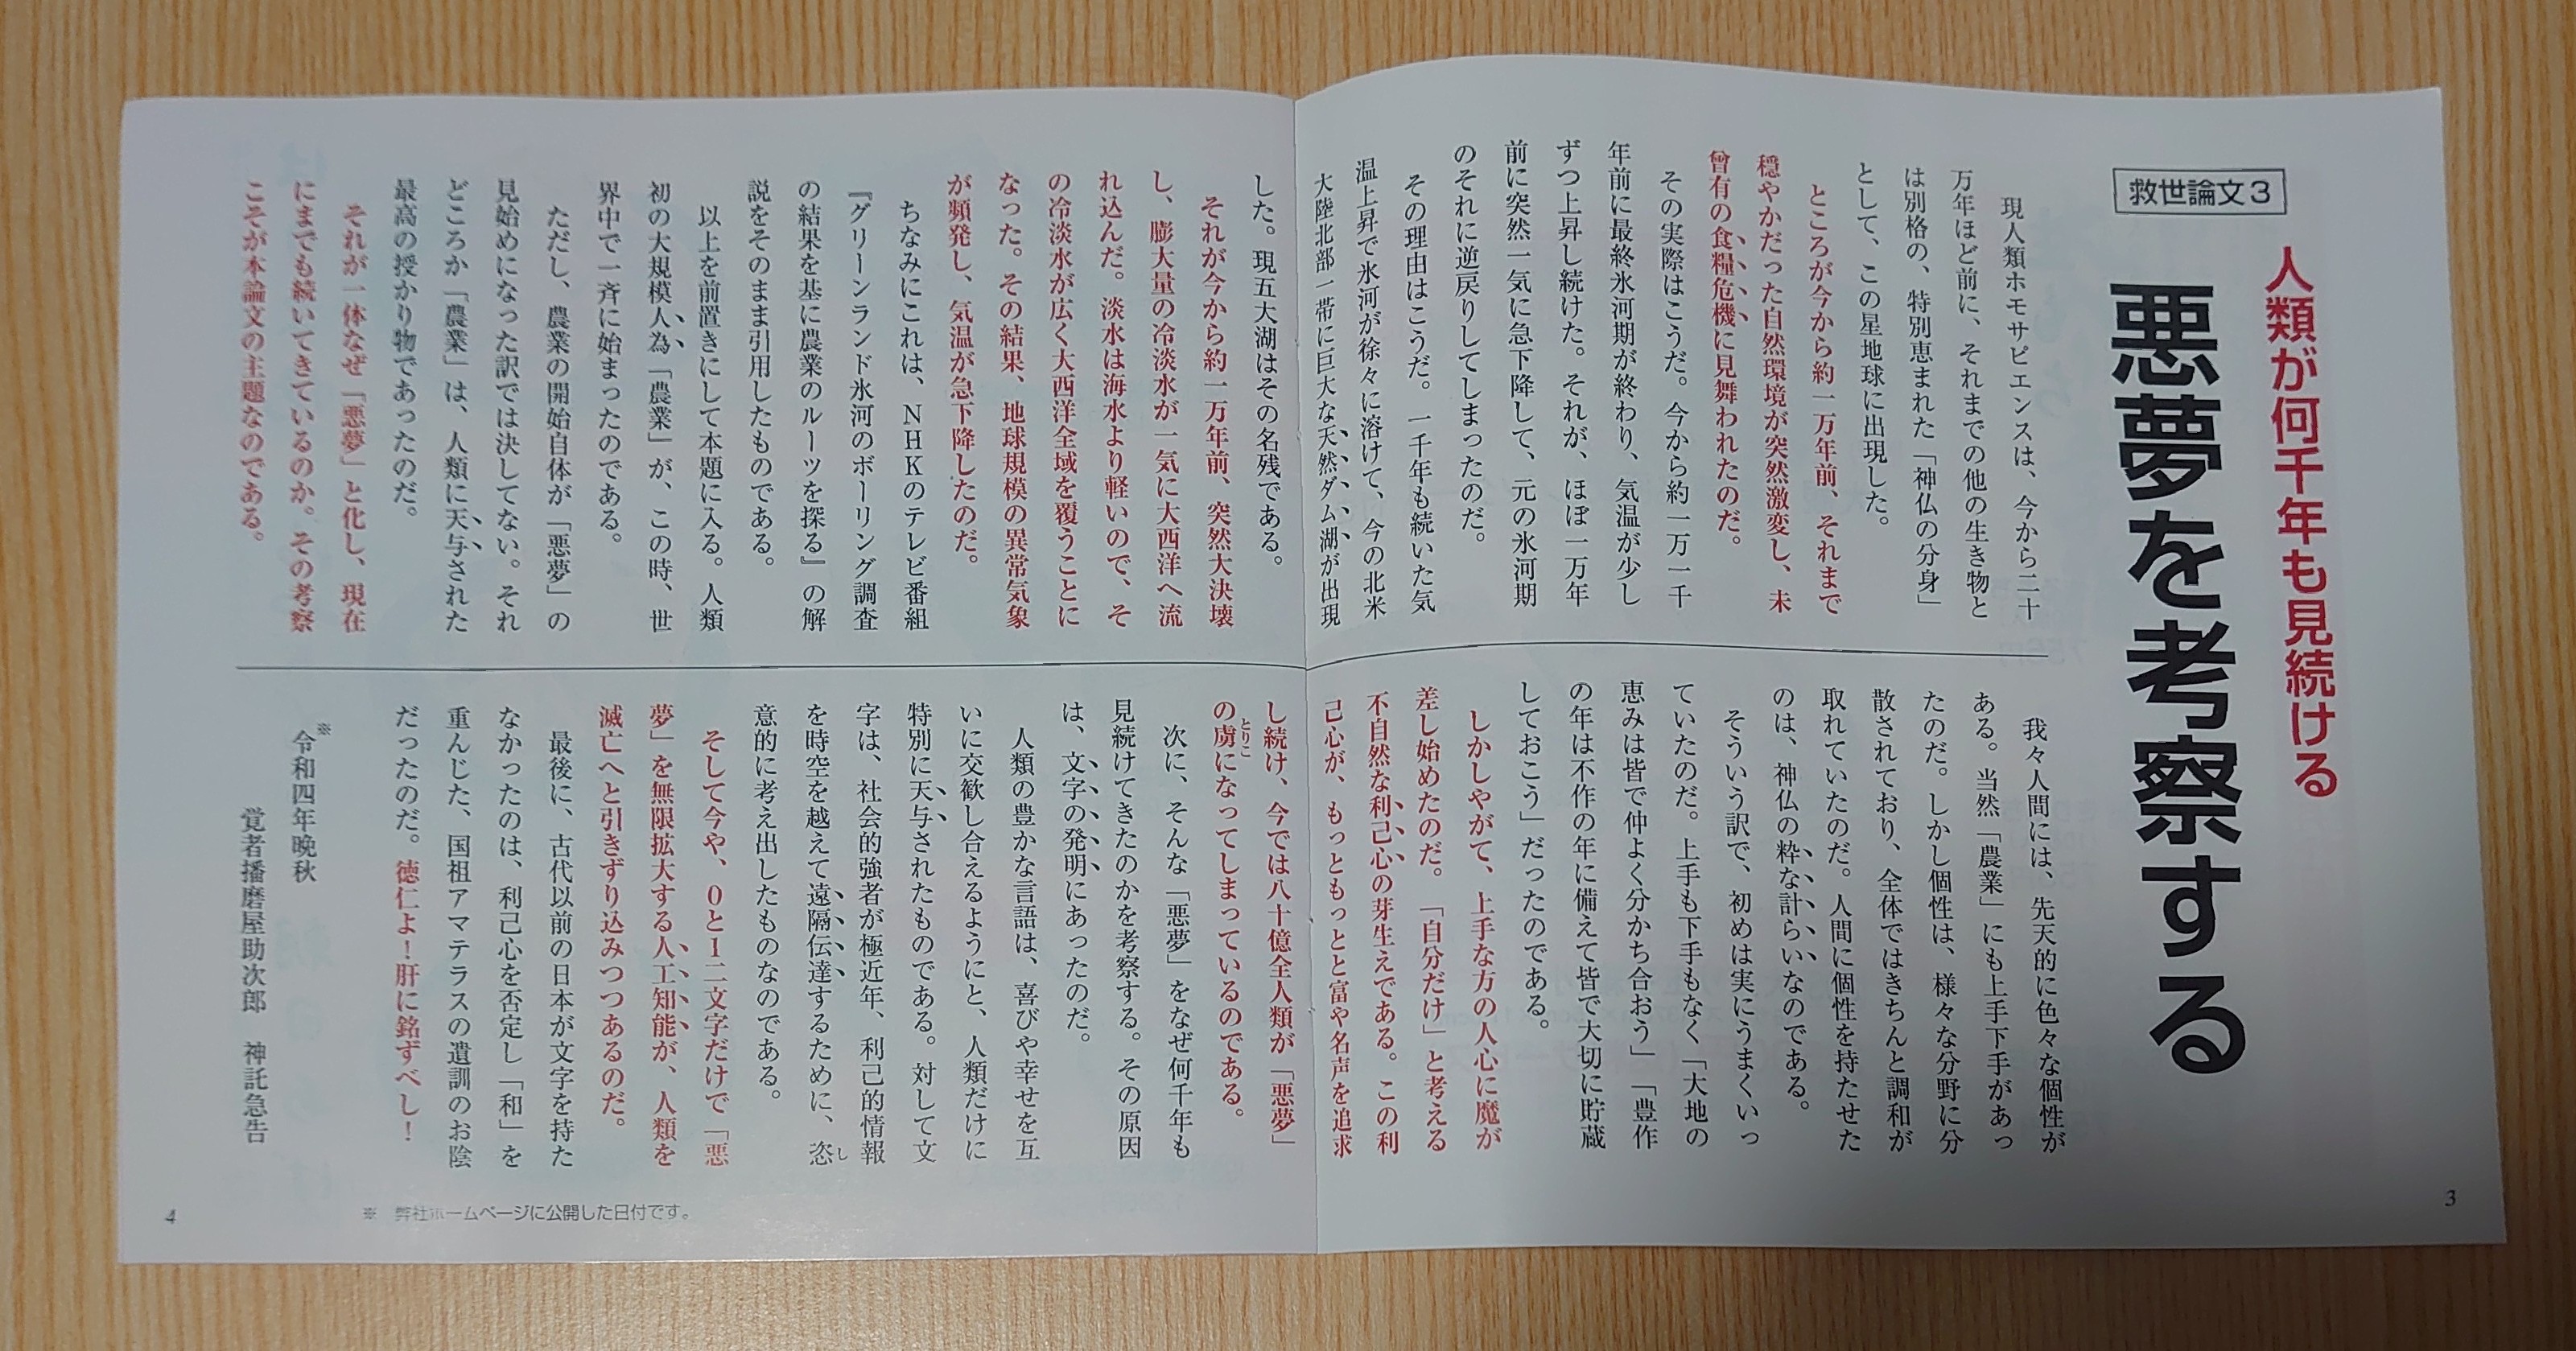 救世論文3
人類が何千年も見続ける
悪夢を考察する
現人類ホモサピエンスは、今から二十
万年ほど前に、それまでの他の生き物と
は別格の、特別恵まれた「神仏の分身」
として、この星地球に出現した。
ところが今から約一万年前、それまで
穏やかだった自然環境が突然激変し、未
曾有の食糧危機に見舞われたのだ。
その実際はこうだ。今から約一万一千
年前に最終氷河期が終わり、気温が少し
ずつ上昇し続けた。それが、ほぼ一万年
前に突然一気に急下降して、元の氷河期
のそれに逆戻りしてしまったのだ。
その理由はこうだ。一千年も続いた気
温上昇で氷河が徐々に溶けて、今の北米
大陸北部一帯に巨大な天然ダム湖が出現
した。現五大湖はその名残である。
それが今から約一万年前、突然大決壊
し、膨大量の冷淡水が一気に大西洋へ流
れ込んだ。淡水は海水より軽いので、そ
の冷淡水が広く大西洋全域を覆うことに
なった。その結果、地球規模の異常気象
が頻発し、気温が急下降したのだ。
ちなみにこれは、NHKのテレビ番組
『グリーンランド氷河のボーリング調査
の結果を基に農業のルーツを探る』の解
説をそのまま引用したものである。
以上を前置きにして本題に入る。人類
初の大規模人為「農業」が、この時、世
界中で一斉に始まったのである。
ただし、農業の開始自体が「悪夢」の
見始めになった訳では決してない。それ
どころか「農業」は、人類に天与された
最高の授かり物であったのだ。
それが一体なぜ「悪夢」と化し、現在
にまでも続いてきているのか。その考察
こそが本論文の主題なのである。
我々人間には、先天的に色々な個性が
ある。当然「農業」にも上手下手があっ
たのだ。しかし個性は、様々な分野に分
散されており、全体ではきちんと調和が
取れていたのだ。人間に個性を持たせた
のは、神仏の粋な計らいなのである。
そういう訳で、初めは実にうまくいっ
ていたのだ。上手も下手もなく「大地の
恵みは皆で仲よく分かち合おう」「豊作
の年は不作の年に備えて皆で大切に貯蔵
しておこう」だったのである。
しかしやがて、上手な方の人心に魔が
差し始めたのだ。「自分だけ」と考える
不自然な利己心の芽生えである。この利
己心が、もっともっとと富や名声を追求
し続け、今では八十億全人類が「悪夢」
の虜になってしまっているのである。
とりこ
次に、そんな「悪夢」をなぜ何千年も
見続けてきたのかを考察する。その原因
は、文字の発明にあったのだ。
人類の豊かな言語は、喜びや幸せを互
いに交歓し合えるようにと、人類だけに
特別に天与されたものである。対して文
字は、社会的強者が極近年、利己的情報
を時空を越えて遠隔伝達するために、恣
し
意的に考え出したものなのである。
そして今や、0と1二文字だけで「悪
夢」を無限拡大する人工知能が、人類を
滅亡へと引きずり込みつつあるのだ。
最後に、古代以前の日本が文字を持た
なかったのは、利己心を否定し「和」を
重んじた、国祖アマテラスの遺訓のお陰
だったのだ。徳仁よ！肝に銘ずべし！
※令和四年晩秋
覚者播磨屋助次郎 神託急告
※ 弊社ホームページに公開した日付です。
3
4